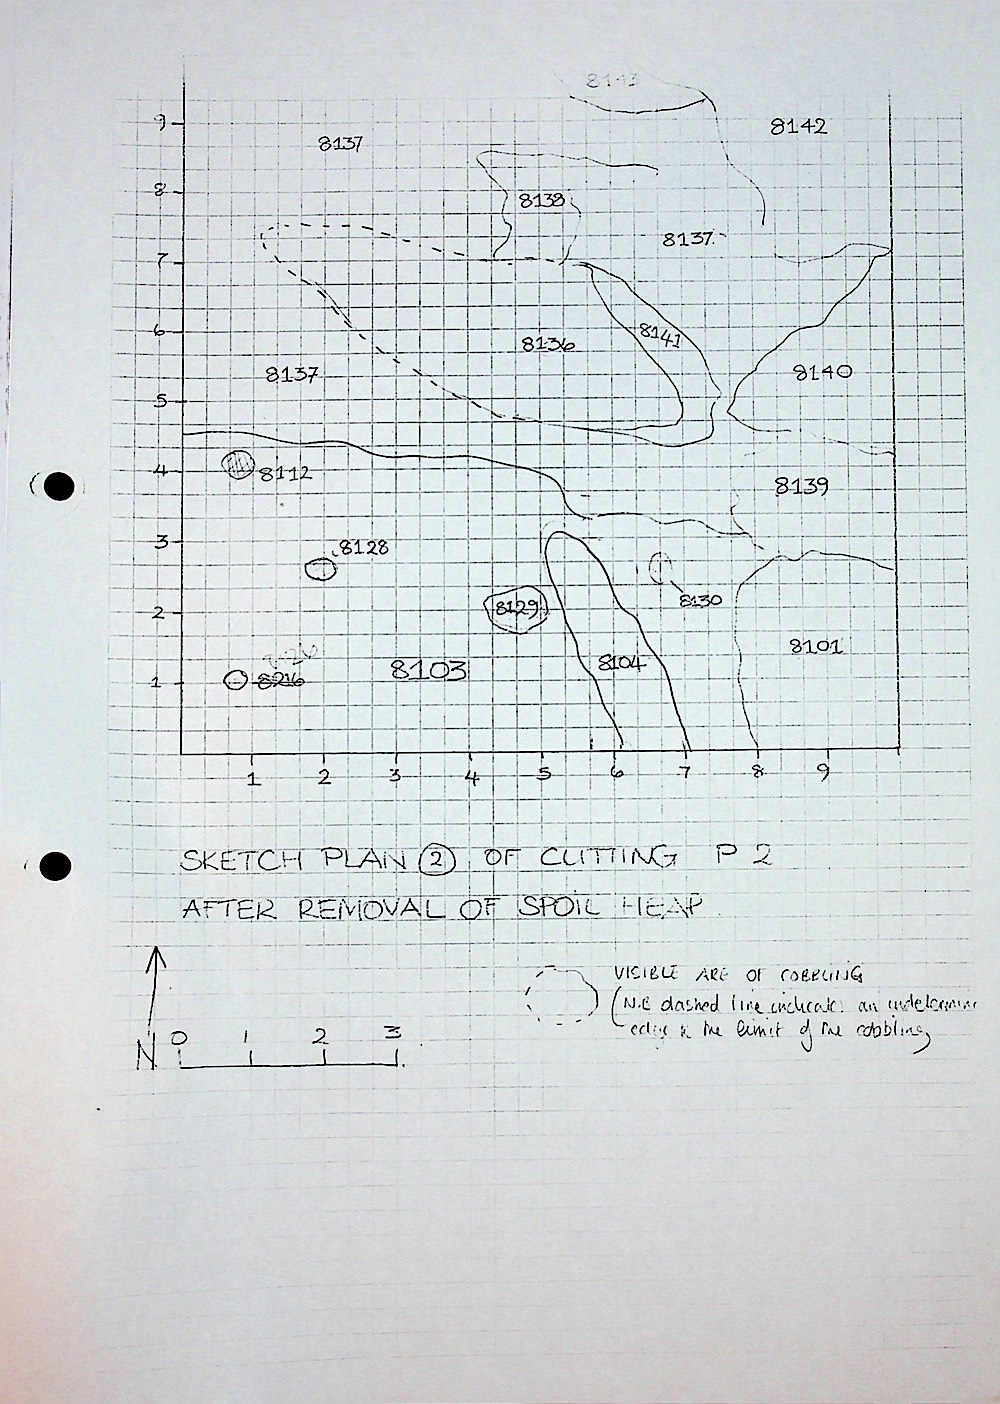 8143
9
8142
8137
8
8138
8137
7
6
8136
8141
8137
8140
5
4
8112
8139
3
8128
2
8129
8130
8101
8104
8103
1
8216
1 2 3 4 5 6 7 8 9
SKETCH PLAN 2 OF CUTTING P 2
AFTER REMOVAL OF SPOIL HEAP
VISIBLE ARE OF COBBLING
(N.B dashed line indicates an
edge the limit of the cobbling)
0 1 2 3
N